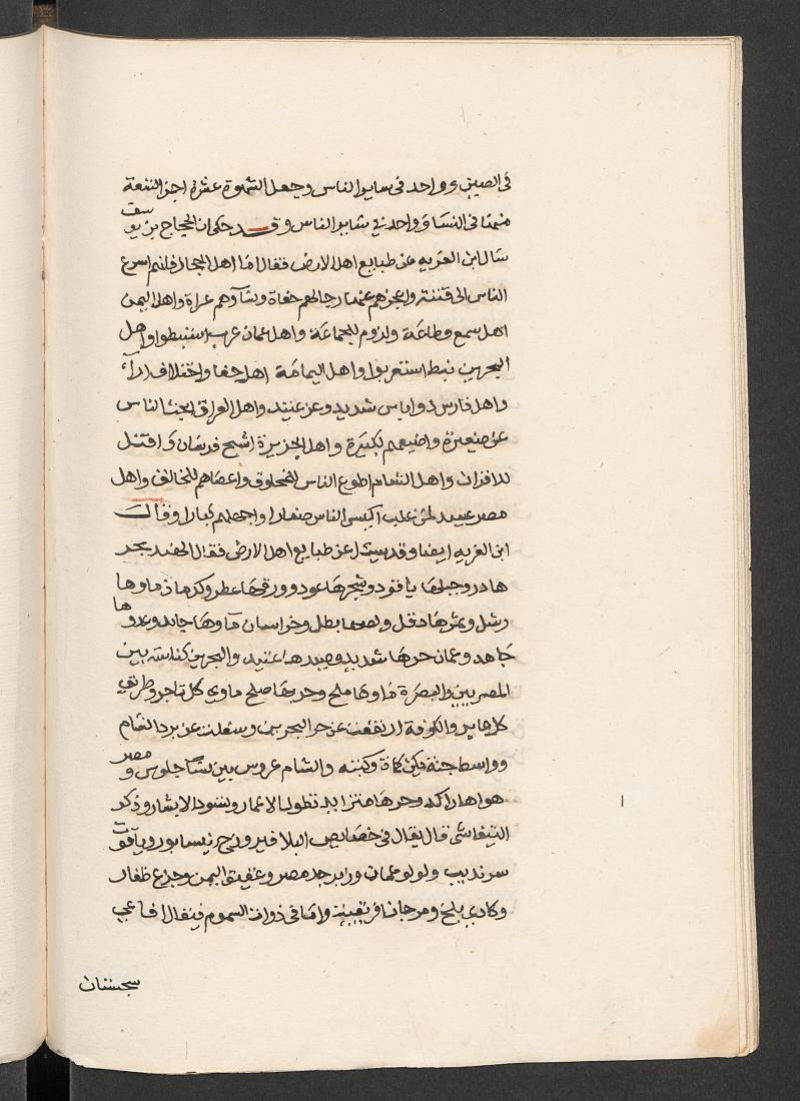 في الصين وواحد في ساير الناس وجعل الشهوة عشرة اجزا تسعة
منها في النسا وواحد في ساير الناس وقد حكى ان الحجاج بن يوسف
سال ابن القريه عن طبايع اهل الارض فقال اما اهل الحجاز فانهم اسرع
الناس الى فتنة واعجزهم عنها رجالهم حفاة ونساوهم عراة واهل اليمن
اهل سمع وطاعة ولزوم للجماعة واهل عمان عرب استنبطوا واهل
البحرين نبط استعربوا واهل اليمامة اهل جفا واختلاف ارآء
واهل فارس ذو اباس شديد وعز عنيد واهل العراق ابحث الناس
عن صغيرة واضيعهم لكبيرة واهل الجزيرة اشجع فرسان واقتل
للاقران واهل الشام اطوع الناس للمخلوق واعصاهم للخالق واهل
مصر عبيد لمن غلب اكيس الناس صغارا واجهلهم كبارا وقال
ابن القريه ايضا وقد سيل عن طبايع اهل الارض فقال الهند بحر
ها در وجبلها ياقود وشجرها عود وورقها عطر وكرمان ماوها
وشل وتمرها دقل ولصها بطل وخراسان مآوها جامد وعدوها
جاهد وعمان حرها شديد وصيدها عتيد والبحرين كناسة بين
المصريين والبصرة ماوها ملح وحربها صلح ماوي كل تاجر وطريق
كل عابر والكوفة ارتفعت عن حر البحرين وسفلت عن برد الشام
وواسط جنة بين كماة وكنه والشام عروس بين نسآ جلوس ومصر
هواها راكد وحرها متزايد تطول الاعمار وتسود الابشار وذكر
التيفاشي قال يقال في خصايص البلا فيروزج نيسابور وياقوت
سرنديب ولولو عمان وزبرجد مصر وعقيق اليمن وجزع ظفار
وكادي بلخ ومرجان افريقية واما في ذوات السموم فيقال افاعي
سجستان